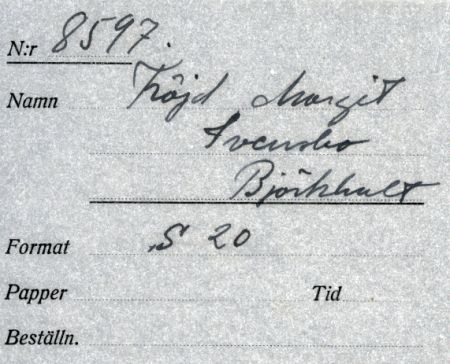 N:r 8597.
Namn Fröjd Margit
Svensbo
Björkhult
Format S 20
Papper Tid
Beställn.